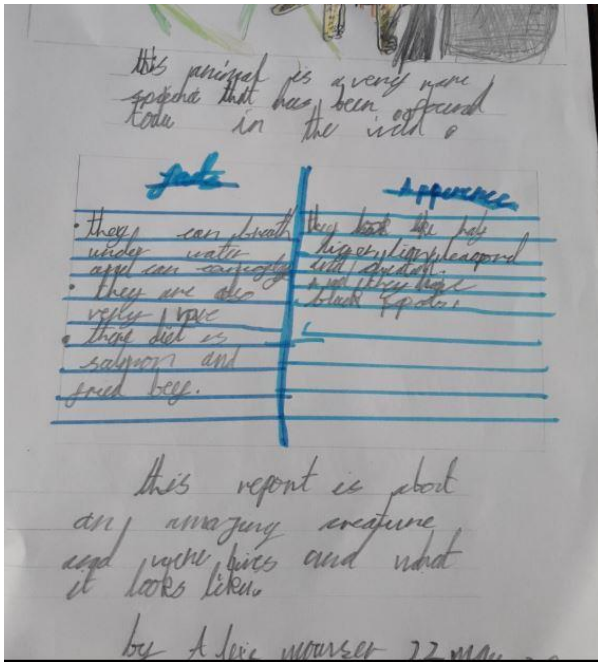 this animal is a very rare
that has been found
in the wild.
facts
Apperence
they can breath
under water
and can
they are also
very rare
there diet is
salmon and
fried beef.
they look like half
tigger, lion, leapord
and
and they have
black
this report is about
an amazing creature
and were lives and what
it looks like.
by Alexe mowser 22 may